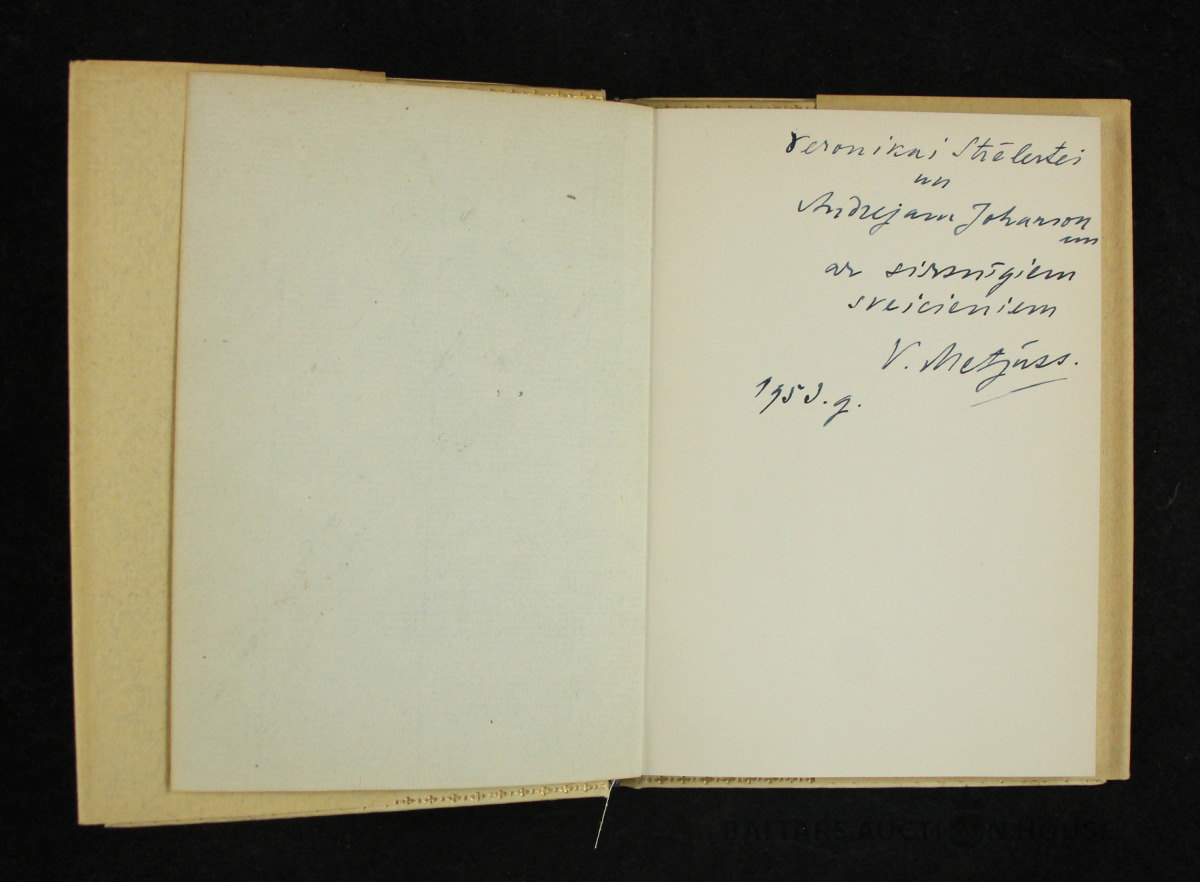 Veronikai Strēlertei
un
Andrejam Johanson
am
ar sirsnīgiem
sveicieniem
V. Metjuss.
1953. g.
BALTARS AUCTION HOUSE